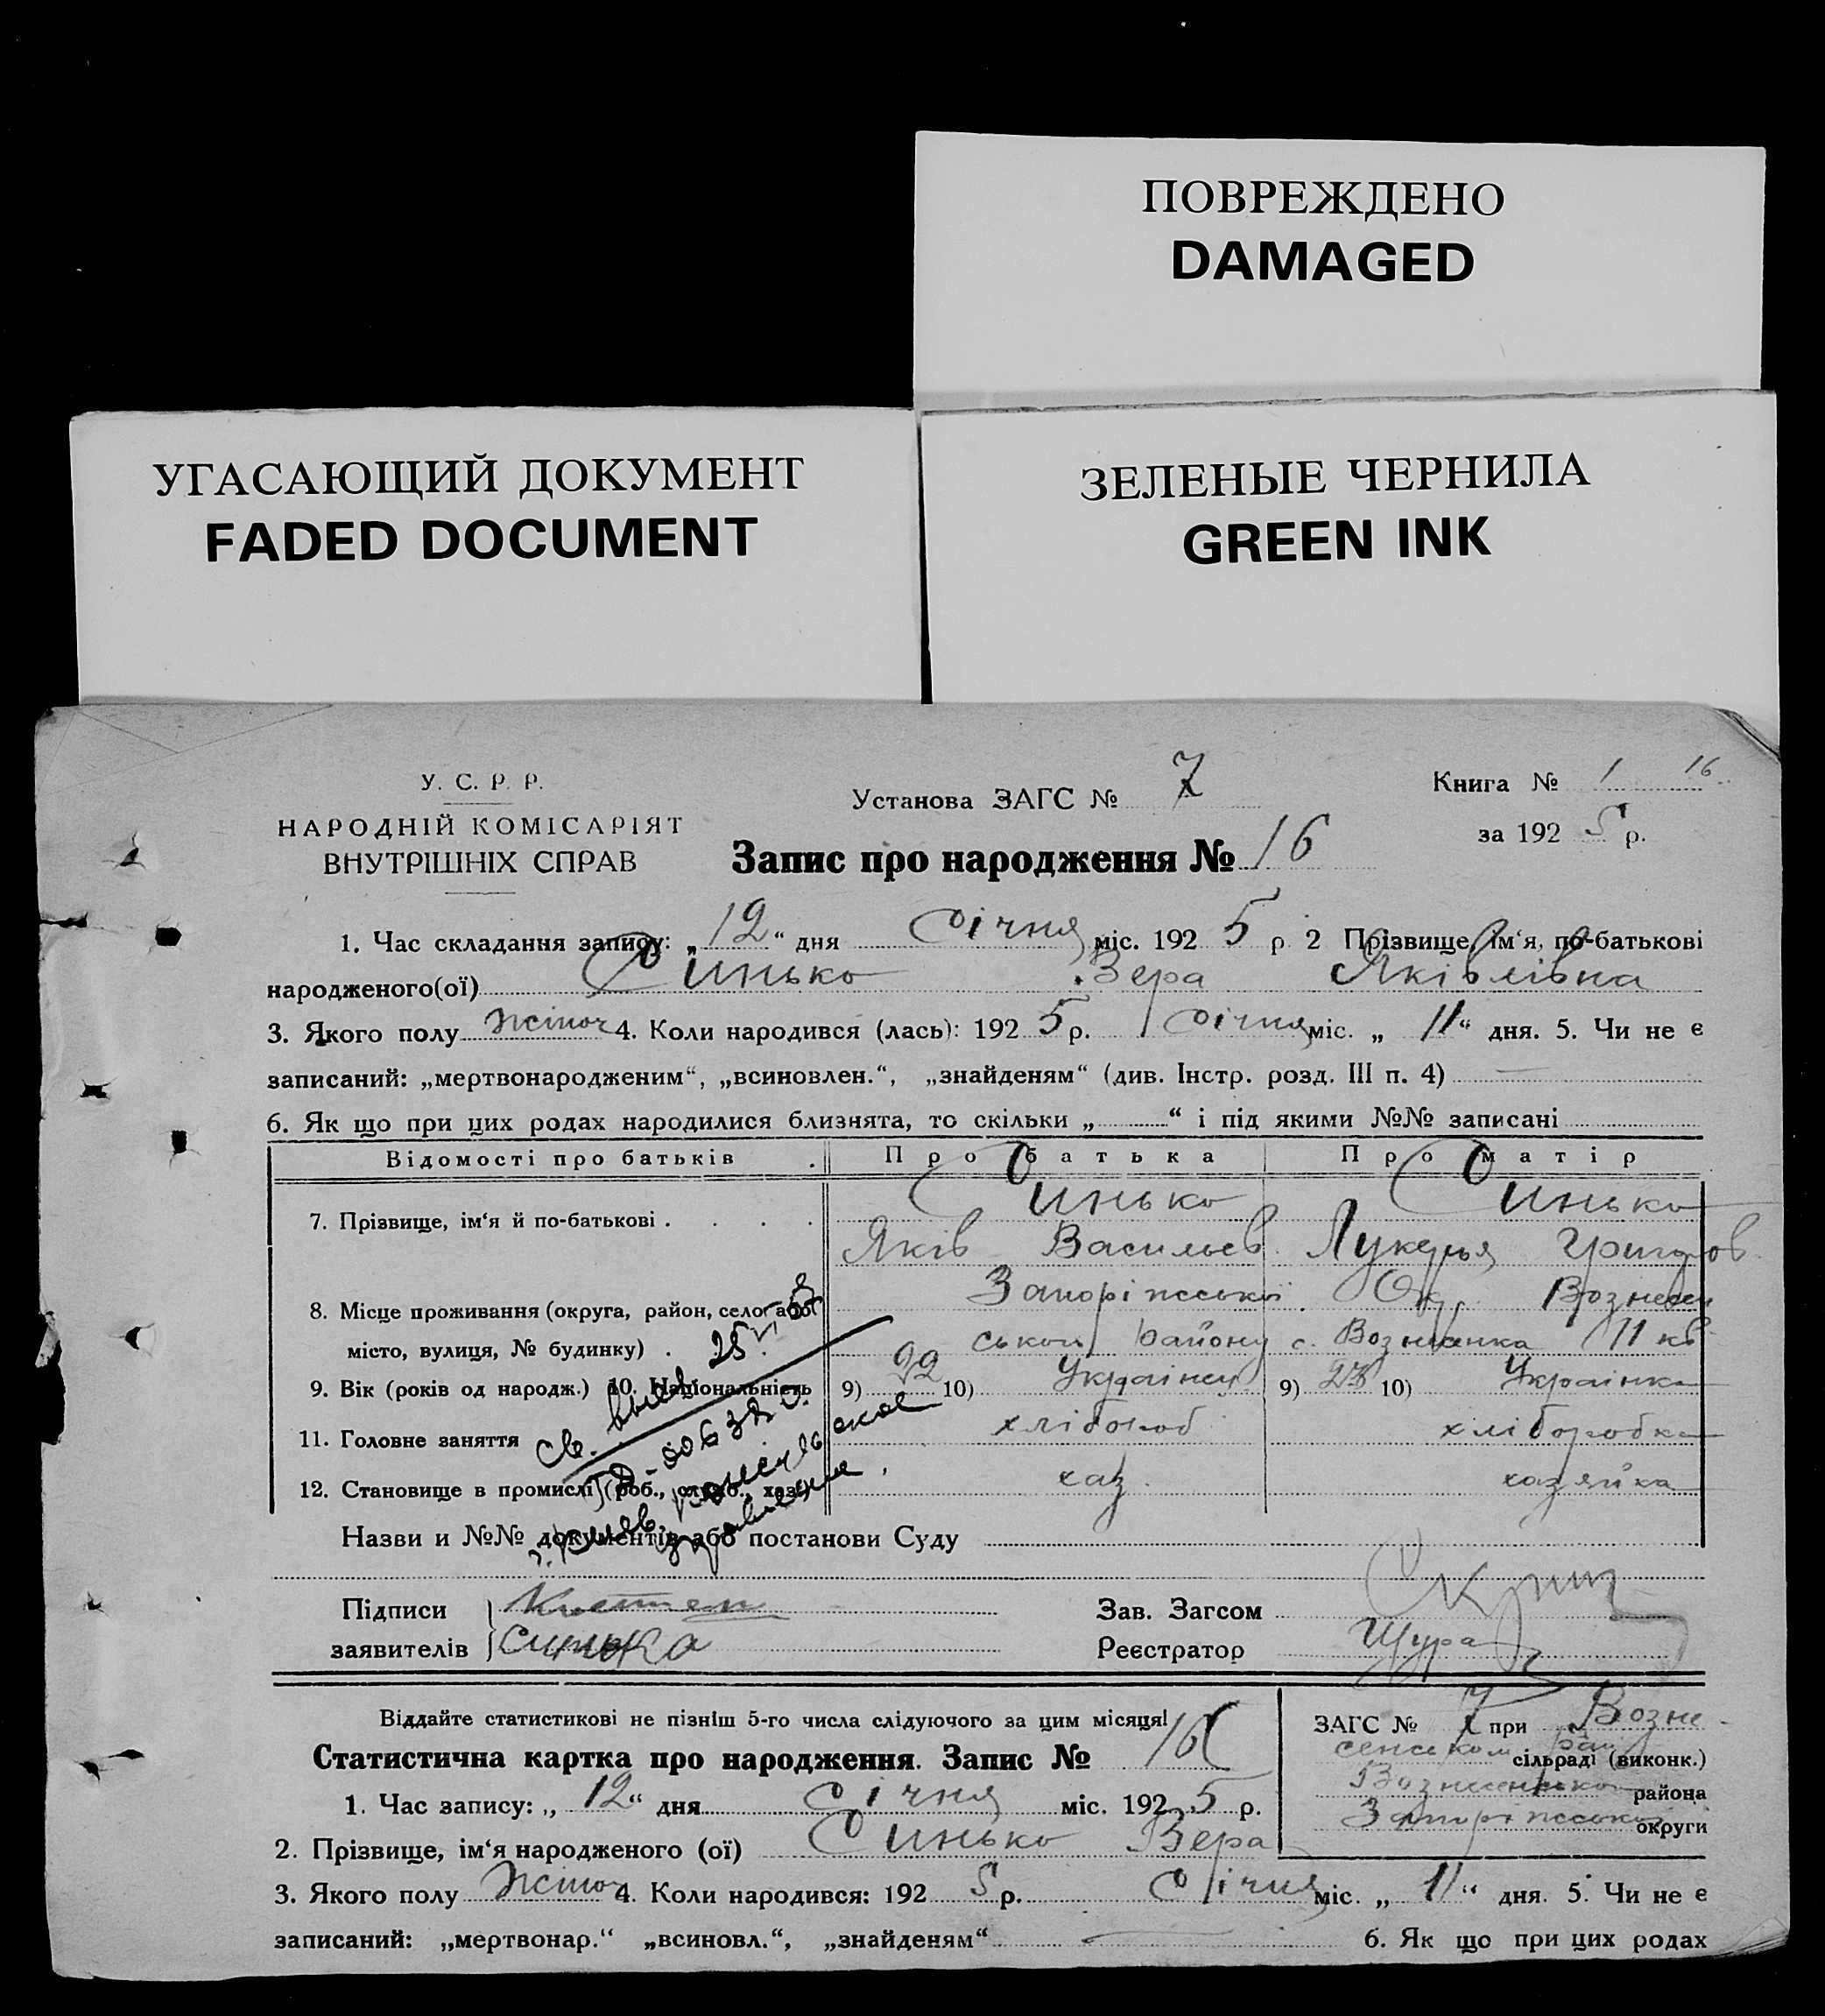 ПОВРЕЖДЕНО
DAMAGED
УГАСАЮЩИЙ ДОКУМЕНТ
FADED DOCUMENT
ЗЕЛЕНЫЕ ЧЕРНИЛА
GREEN INK
У. С. Р. Р.
НАРОДНІЙ КОМІСАРІЯТ
ВНУТРІШНІХ СПРАВ
Установа ЗАГС № 7
Книга № 1 16
за 192 5 р.
Запис про народження № 16
1. Час складання запису: „ 12 “ дня Січня міс. 192 5 р. 2 Прізвище, ім‘я, по-батькові
народженого(ої) Синько Вера Яківлівна
3. Якого полу жіноч 4. Коли народився (лась): 192 5 р. Січня міс. „ 11 “ дня. 5. Чи не є
записаний: „мертвонародженим“, „всиновлен.“, „знайденям“ (див. Інстр. розд. III п. 4)
6. Як що при цих родах народилися близнята, то скільки „ “ і під якими №№ записані
Відомості про батьків Про батька Про матір
7. Прізвище, ім‘я й по-батькові . . . . Синько Синько
Яків Васильев. Лукерья Григоров
8. Місце проживання (округа, район, село або Запоріжської Окр. Вознесен
місто, вулиця, № будинку) . ського району с. Вознесенка 11 кв
9. Вік (років од народж.) 10. Національність 9) 10) Українец 9) 10) Українка
11. Головне заняття хлібороб хліборобка
12. Становище в промислі (роб., служб., хаз.) хаз. хазяйка
Св.
Назви и №№ документів або постанови Суду
Підписи
заявителів Синька
Зав. Загсом
Реєстратор Щура
Віддайте статистикові не пізніш 5-го числа слідуючого за цим місяця!
Статистична картка про народження. Запис № 16
ЗАГС № 7 при Возне-
сенском рай сільраді (виконк.)
Вознесенського района
Запоріжської округи
1. Час запису: „ 12 “ дня Січня міс. 192 5 р.
2. Прізвище, ім‘я народженого (ої) Синько Вера
3. Якого полу жіноч 4. Коли народився: 192 5 р. Січня міс. „ 11 “ дня. 5. Чи не є
записаний: „мертвонар.“ „всиновл.“, „знайденям“ 6. Як що при цих родах